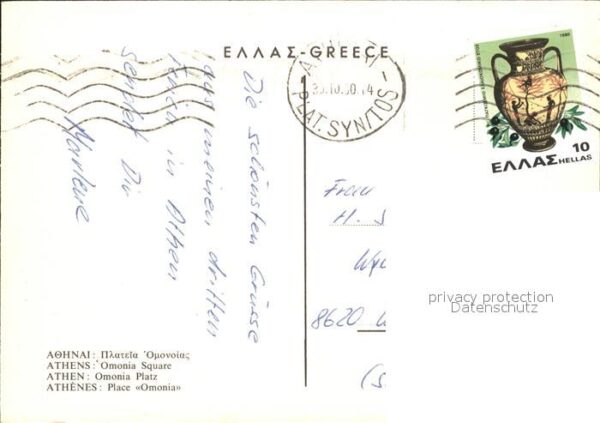 ΕΛΛΑΣ-GREECE
30.10.80.14
PLAT. SYN/TOS
1980
10
ΕΛΛΑΣ HELLAS
Die schönsten Grüsse
aus meinen dritten
in Athen
sendet Dir
Marlene
Frau
H. S
8620 W
privacy protection
Datenschutz
ΑΘΗΝΑΙ: Πλατεῖα Ὁμονοίας
ATHENS: Omonia Square
ATHEN: Omonia Platz
ATHÈNES: Place «Omonia»